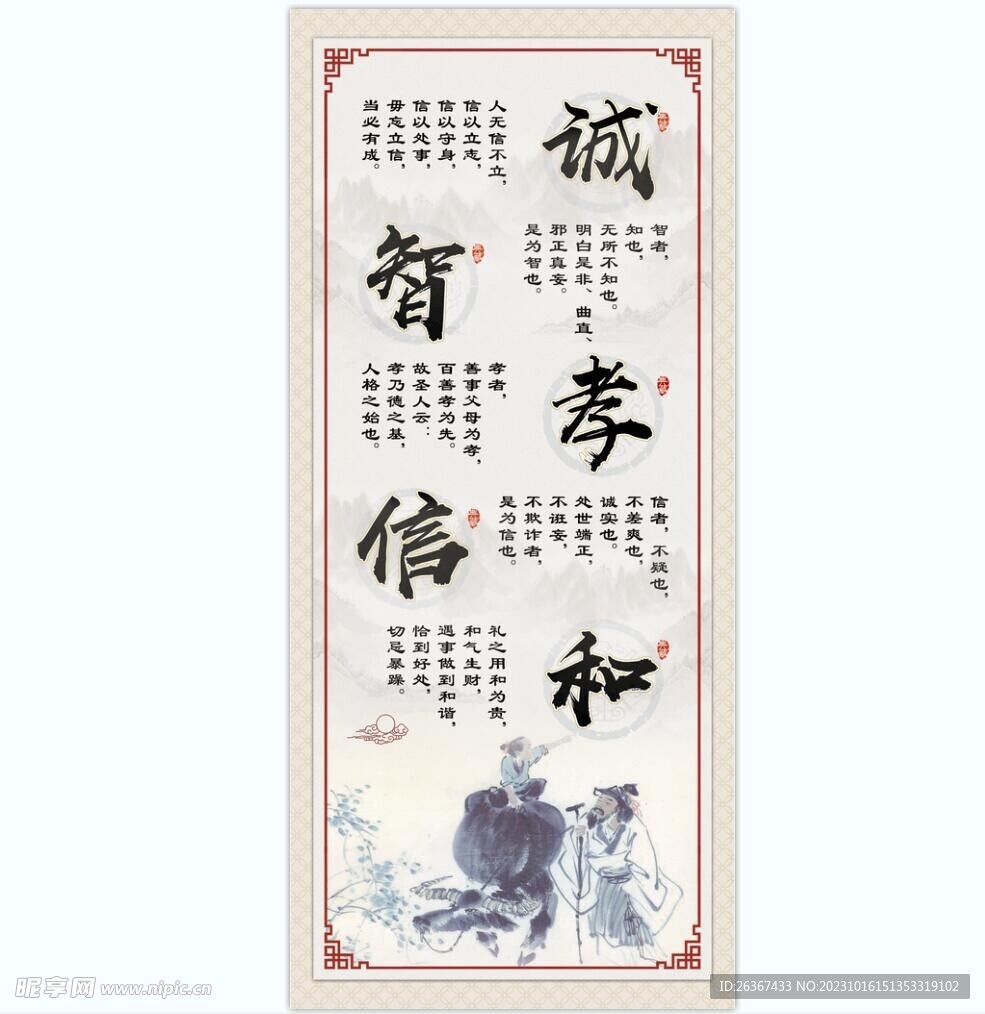 诚
人无信不立，
信以立志，
信以守身，
信以处事，
毋忘立信，
当必有成。
智
智者，
知也，
无所不知也。
明白是非、曲直、
邪正真妄。
是为智也。
孝
孝者，
善事父母为孝，
百善孝为先。
故圣人云：
孝乃德之基，
人格之始也。
信
信者，不疑也，
不差爽也，
诚实也。
处世端正，
不诳妄，
不欺诈者，
是为信也。
和
礼之用和为贵，
和气生财，
遇事做到和谐，
恰到好处，
切忌暴躁。
昵享网 www.nipic.cn
ID:26367433 NO:20231016151353319102